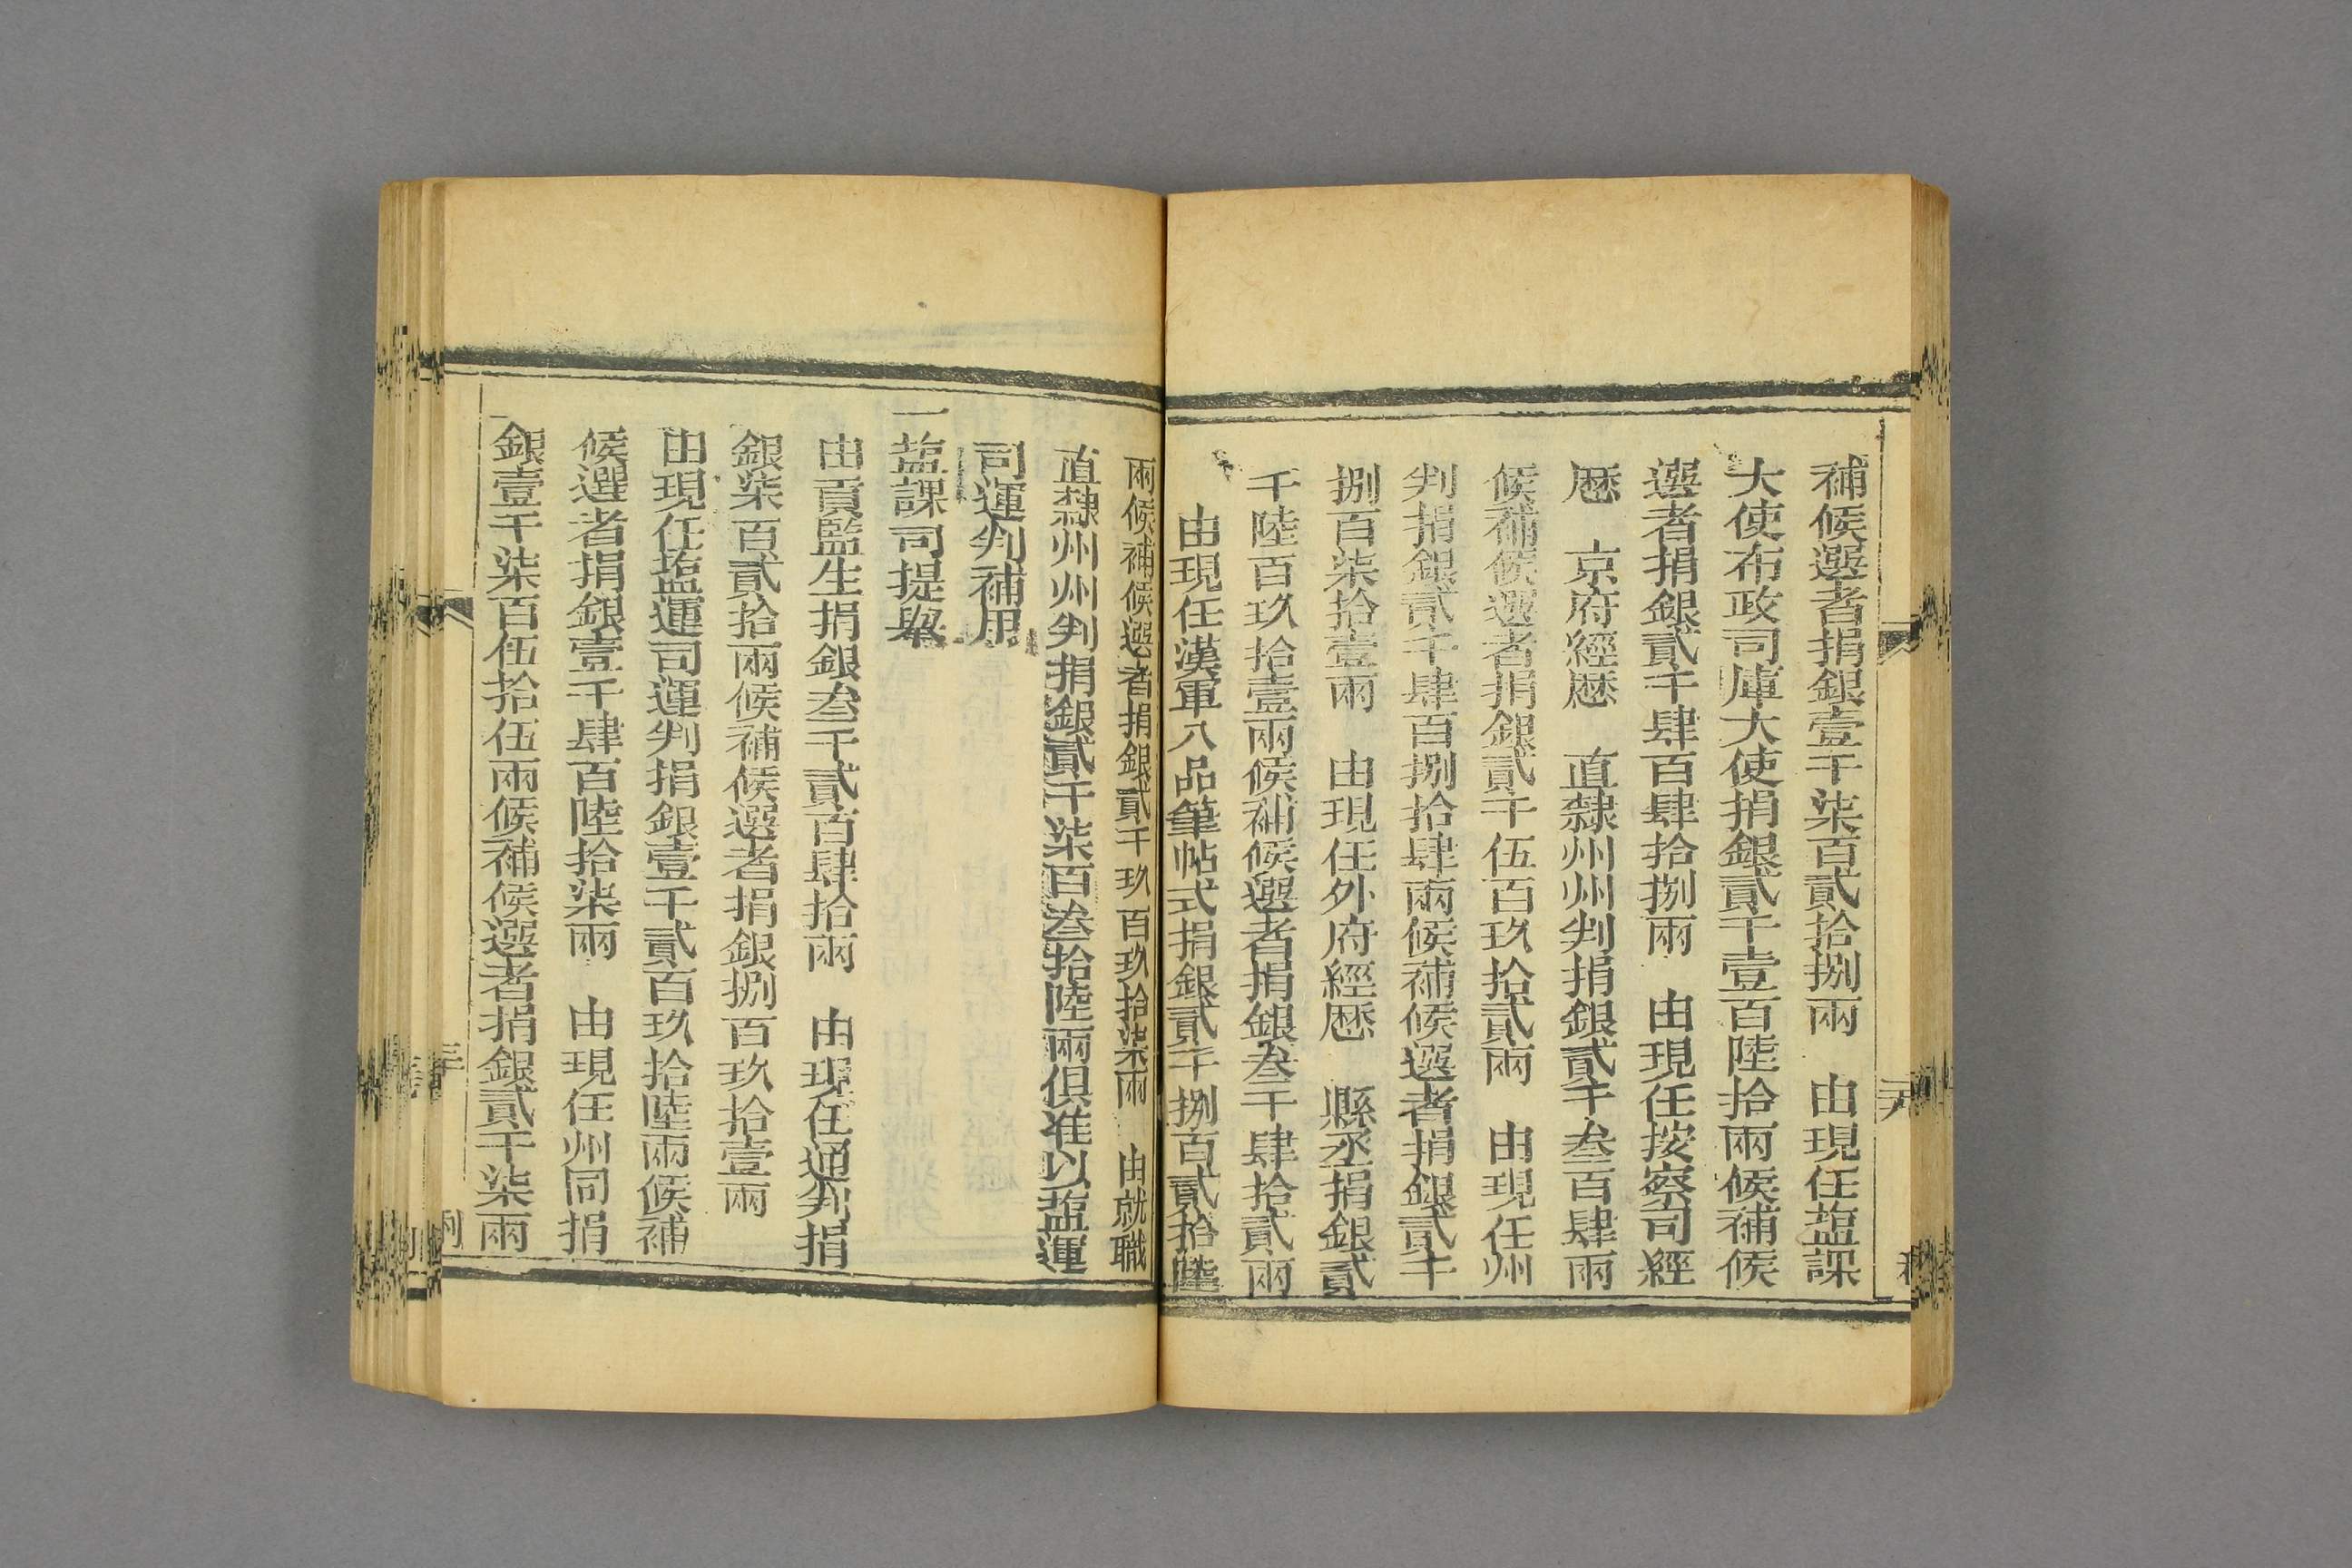 補候選者捐銀壹千柒百貳拾捌兩　由現任塩課
大使布政司庫大使捐銀貳千壹百陸拾兩候補候
選者捐銀貳千肆百肆拾捌兩　由現任按察司經
厯　京府經厯　直隸州州判捐銀貳千叁百肆兩
候補候選者捐銀貳千伍百玖拾貳兩　由現任州
判捐銀貳千肆百捌拾肆兩候補候選者捐銀貳千
捌百柒拾壹兩　由現任外府經厯　縣丞捐銀貳
千陸百玖拾壹兩候補候選者捐銀叁千肆拾貳兩
由現任漢軍八品筆帖式捐銀貳千捌百貳拾陸
兩候補候選者捐銀貳千玖百玖拾柒兩　由就職
直隸州州判捐銀貳千柒百叁拾陸兩俱准以塩運
司運判補用
一塩課司提舉
由貢監生捐銀叁千貳百肆拾兩　由現任通判捐
銀柒百貳拾兩候補候選者捐銀捌百玖拾壹兩
由現任塩運司運判捐銀壹千貳百玖拾陸兩候補
候選者捐銀壹千肆百陸拾柒兩　由現任州同捐
銀壹千柒百伍拾伍兩候補候選者捐銀貳千柒兩